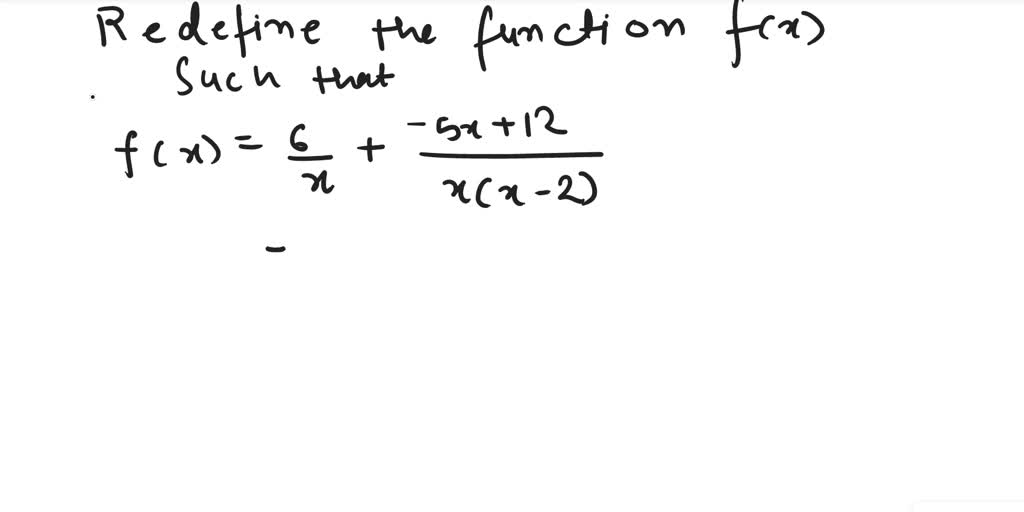 Redefine the function f(x)
Such that
f(x) = 6/x + -5x+12/x(x-2)
=